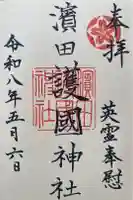 奉拝
英霊奉慰
濱田護國神社
令和八年五月六日